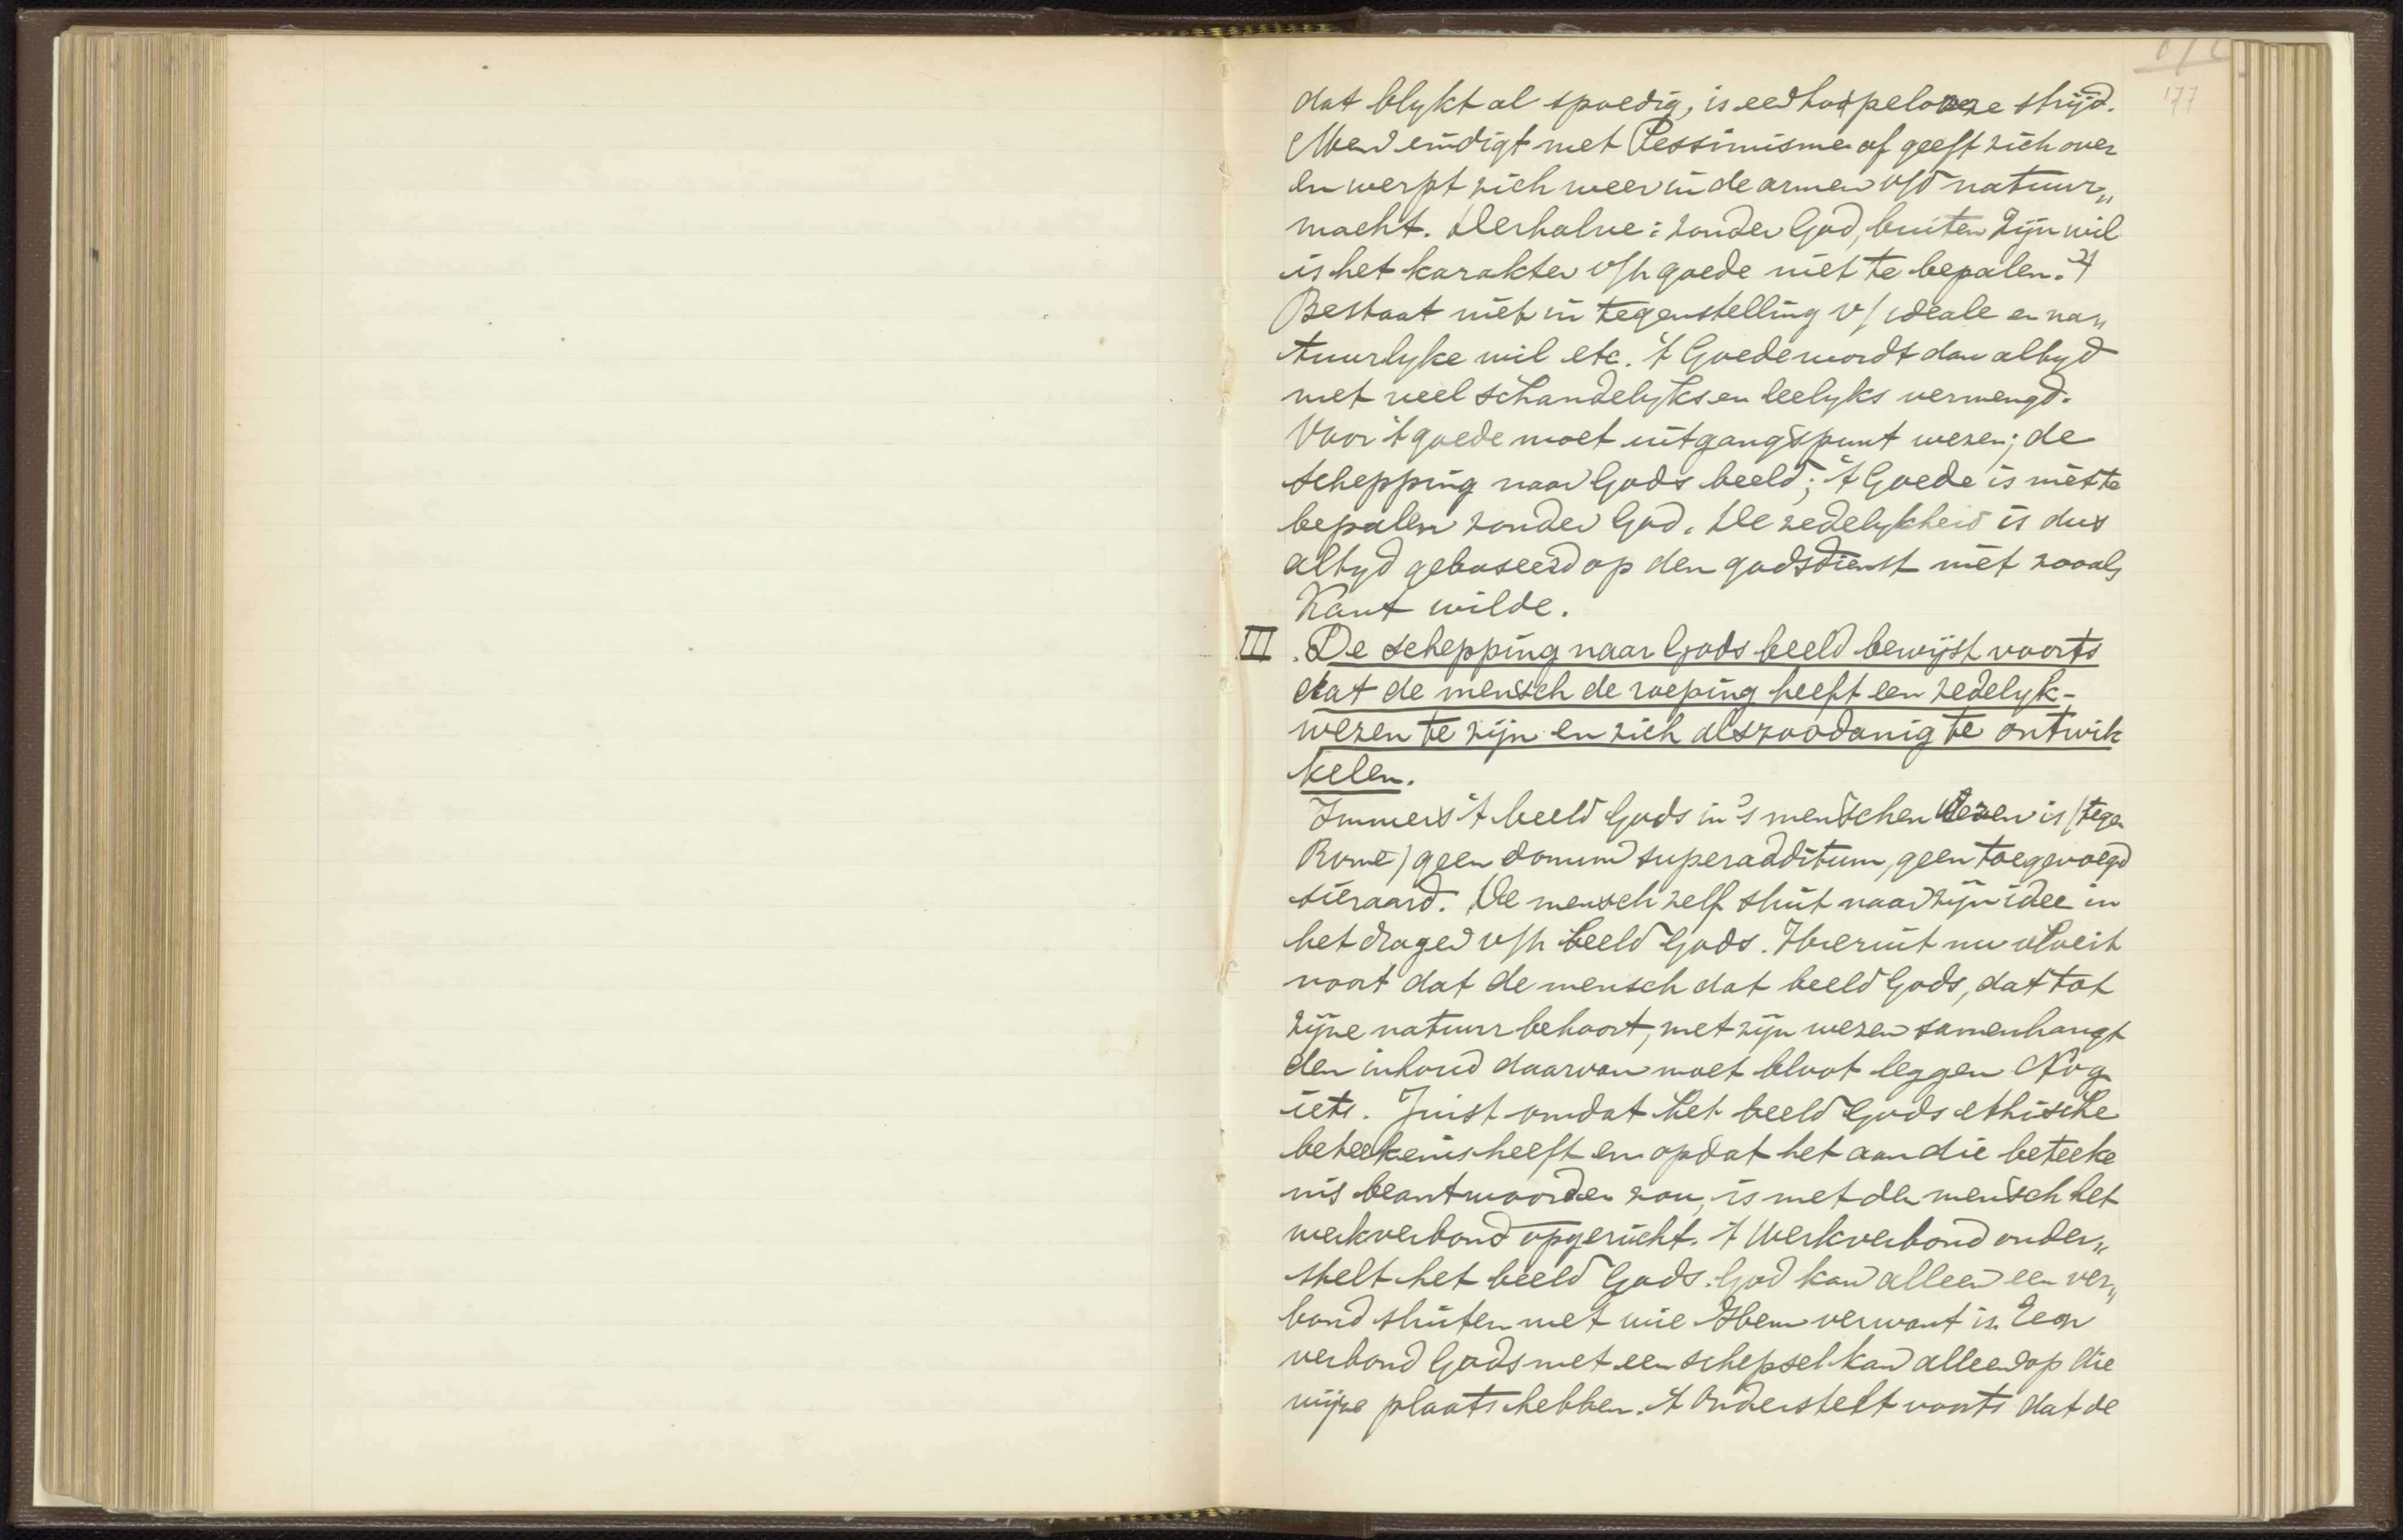 177
dat blykt al spoedig, is een hopelooze strijd.
Men eindigt met Pessimisme of geeft zich over
en werpt zich weer in de armen v/d natuur„
macht. Derhalve: zonder God, buiten Zijn wil
is het karakter v/h goede niet te bepalen. 't
Bestaat niet in tegenstelling v/ ideale en na„
tuurlyke wil etc. 't Goede wordt dan altyd
met veel schandelyks en leelyks vermengd.
Voor 't goede moet uitgangspunt wezen; de
schepping naar Gods beeld; 't Goede is niet te
bepalen zonder God. De zedelykheid is dus
altyd gebaseerd op den godsdienst niet zooals
Kant wilde.
III. De schepping naar Gods beeld bewijst voorts
dat de mensch de roeping heeft een zedelyk-
wezen te zijn en zich als zoodanig te ontwik
kelen.
Immers 't beeld Gods in 's menschen wezen is (tegen
Rome) geen donum superadditum, geen toegevoegd
sieraad. De mensch zelf sluit naar zijn idee in
het dragen v/h beeld Gods. Hieruit nu vloeit
voort dat de mensch dat beeld Gods, dat tot
zijne natuur behoort, met zijn wezen samenhangt
den inhoud daarvan moet bloot leggen Nog
iets. Juist omdat het beeld Gods ethische
beteekenis heeft en opdat het aan die beteeke
nis beantwoorden zou, is met den mensch het
werkverbond opgericht. 't Werkverbond onder„
stelt het beeld Gods. God kan alleen een ver„
bond sluiten met wie Hem verwant is. Een
verbond Gods met een schepsel kan alleen op die
wijze plaats hebben. 't Onderstelt voorts dat de